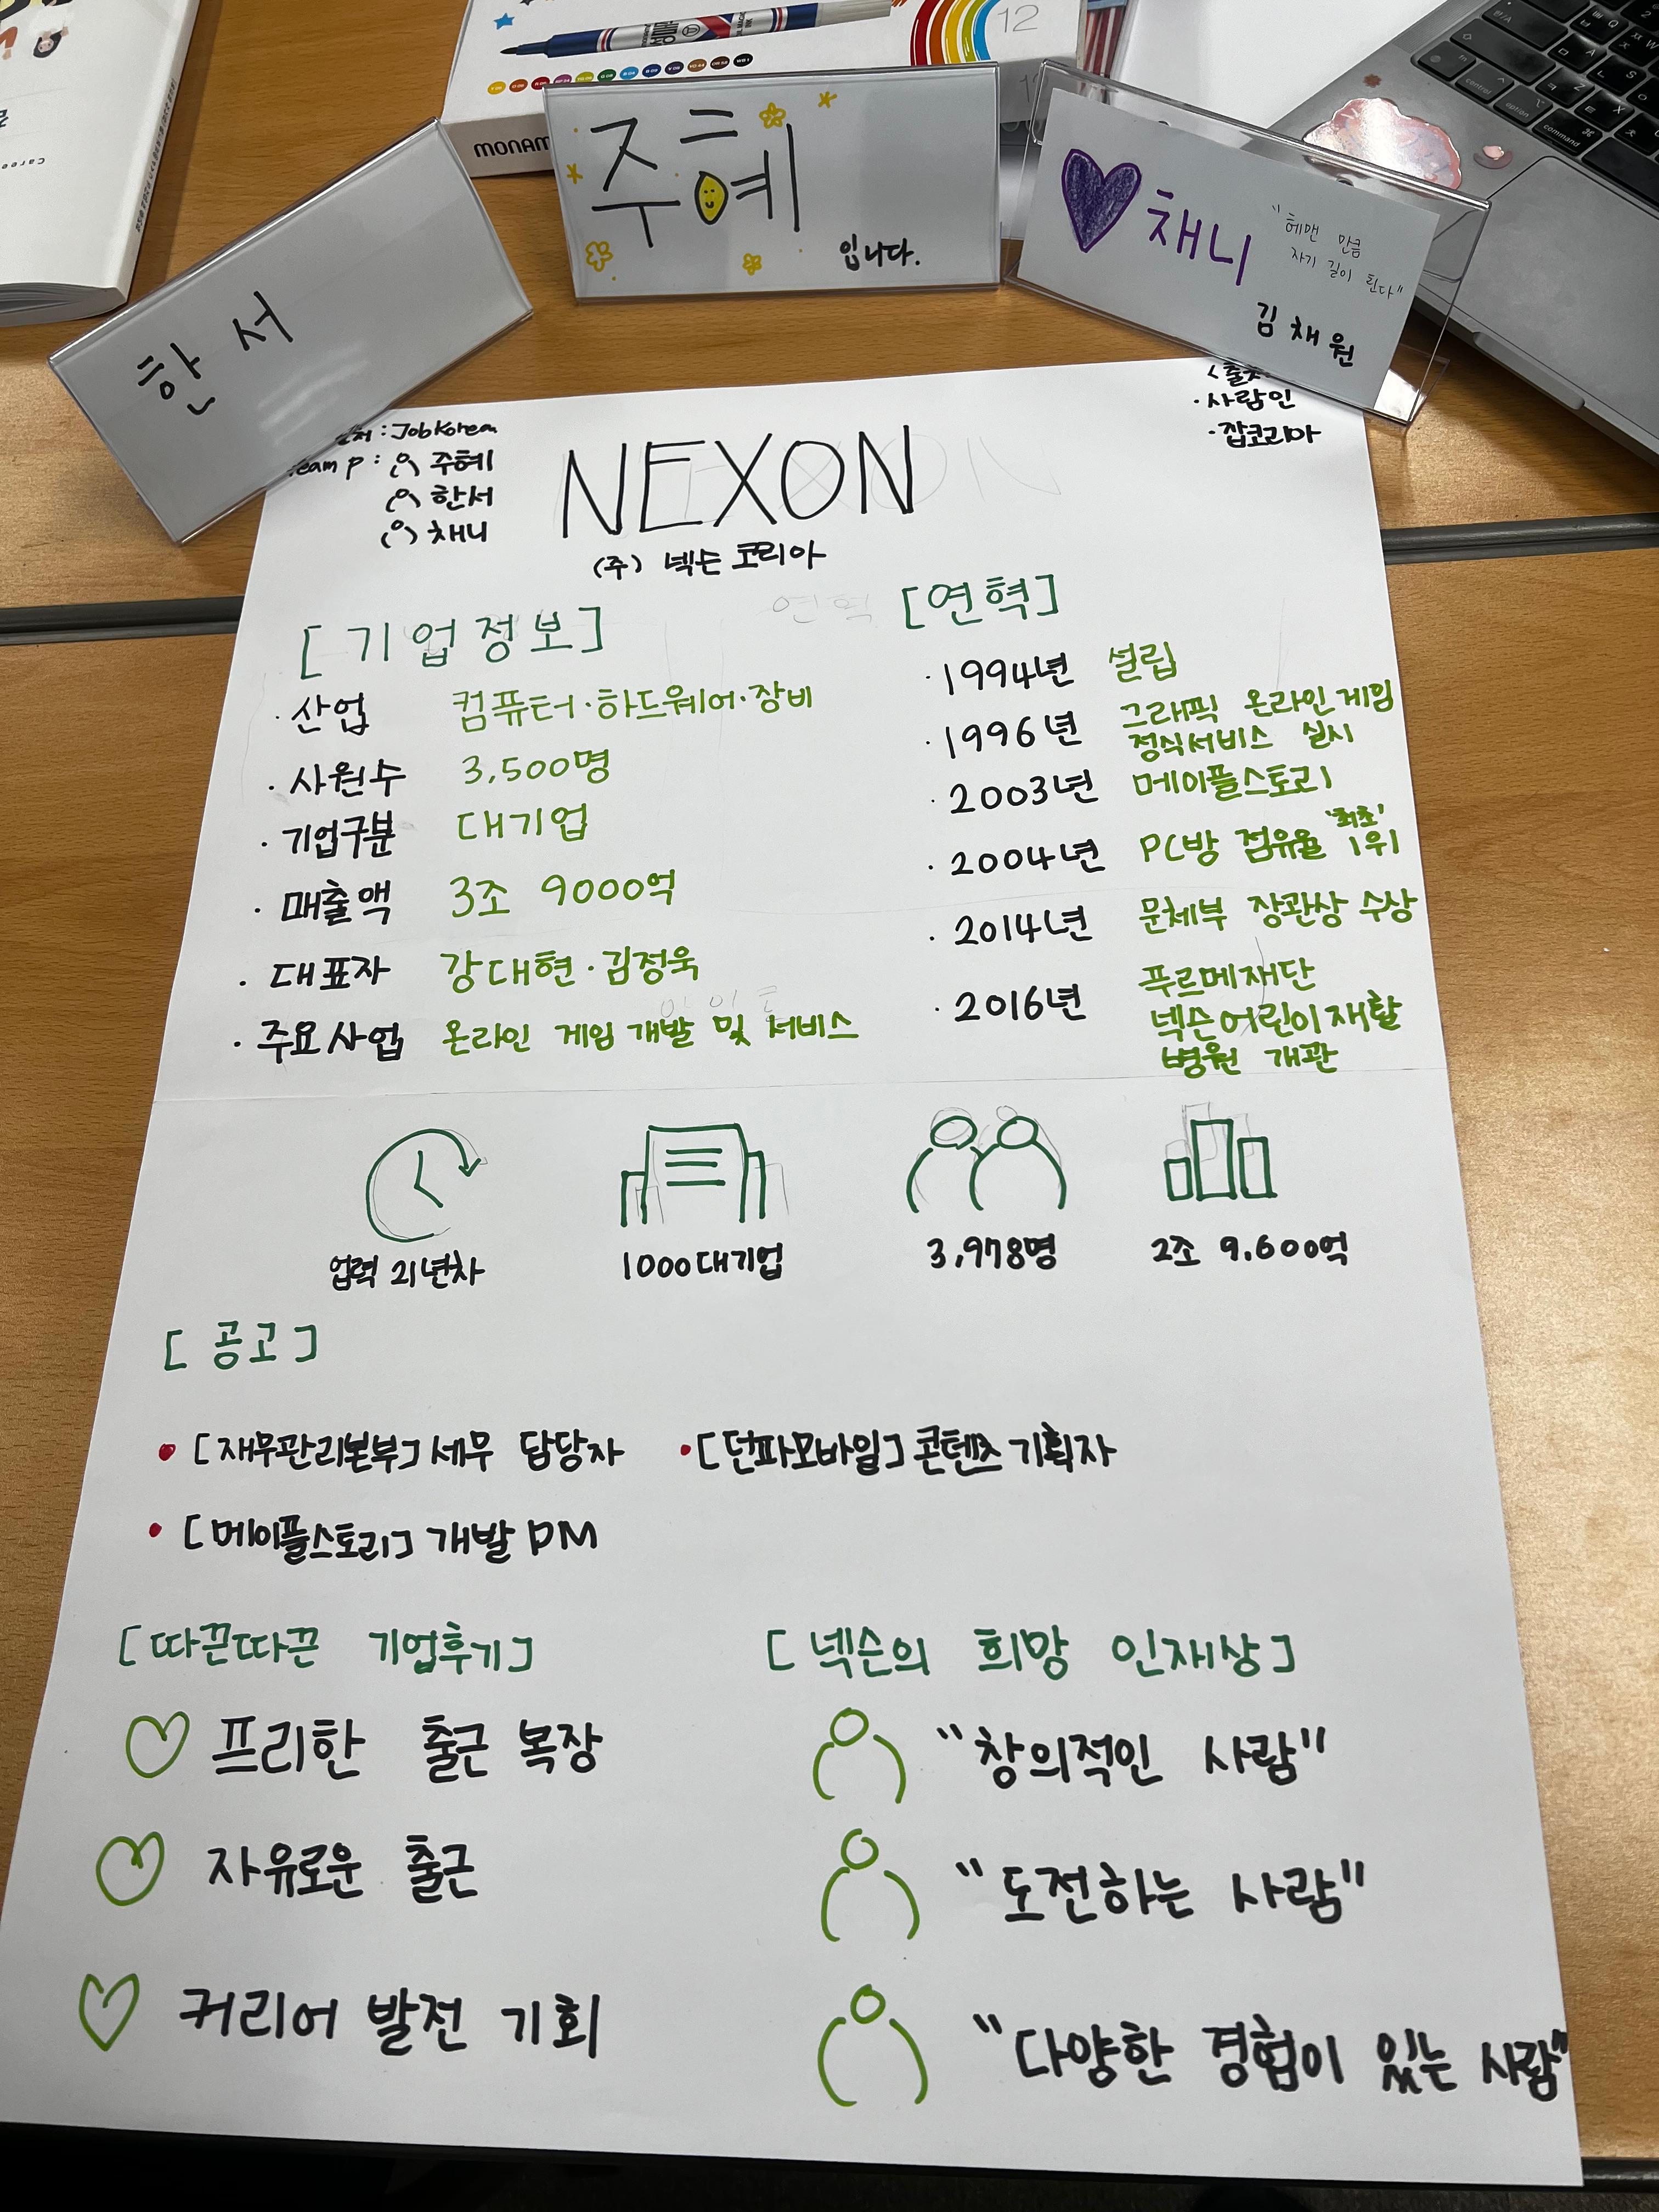 12
MONAM
주혜
입니다.
한서
채니
"헤맨 만큼
자기 길이 된다"
김채원
control
option
command
: JobKorea
team P : 주혜
한서
채니
NEXON
(주) 넥슨 코리아
<출처
· 사람인
· 잡코리아
[기업정보]
· 산업 컴퓨터·하드웨어·장비
· 사원수 3,500명
· 기업구분 대기업
· 매출액 3조 9000억
· 대표자 강대현·김정욱
· 주요사업 온라인 게임 개발 및 서비스
연혁 [연혁]
· 1994년 설립
· 1996년 그래픽 온라인게임
정식서비스 실시
· 2003년 메이플스토리
· 2004년 PC방 점유율 '최초' 1위
· 2014년 문체부 장관상 수상
· 2016년 푸르메재단
넥슨어린이재활
병원 개관
업력 21년차
1000대기업
3,978명
2조 9.600억
[공고]
· [재무관리본부] 세무 담당자
· [던파모바일] 콘텐츠 기획자
· [메이플스토리] 개발 PM
[따끈따끈 기업후기]
프리한 출근 복장
자유로운 출근
커리어 발전 기회
[넥슨의 희망 인재상]
"창의적인 사람"
"도전하는 사람"
"다양한 경험이 있는 사람"